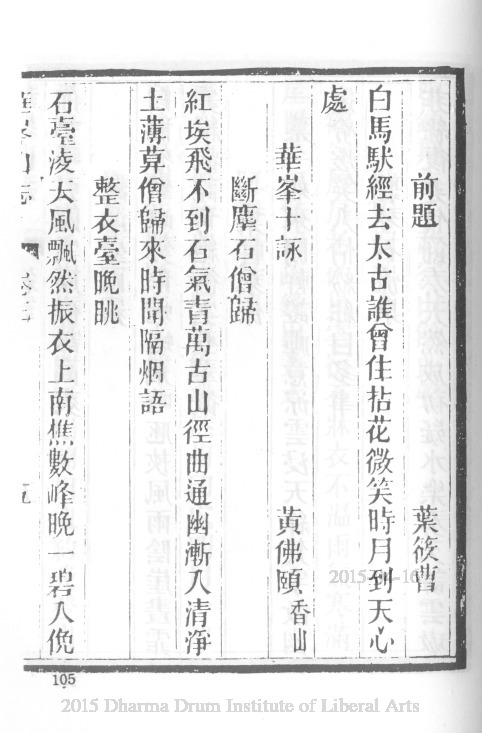 前題 葉筱曹
白馬馱經去太古誰曾住拈花微笑時月到天心
處
華峯十詠 黃佛頤 香山
斷塵石僧歸
紅埃飛不到石氣青萬古山徑曲通幽漸入清淨
土薄莫僧歸來時聞隔烟語
整衣臺晚眺
石臺淩天風飄然振衣上南樵數峰晚一碧入俛
山志 五
105
2015 Dharma Drum Institute of Liberal Arts